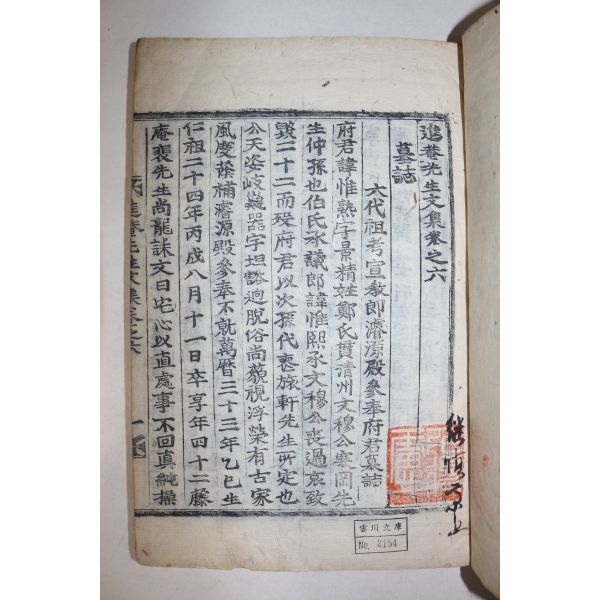 進菴先生文集卷之六
墓誌
六代祖考宣教郎濬源殿參奉府君墓誌
府君諱惟熟字景精姓鄭氏貫清州文穆公寒岡先
生仲孫也伯氏承議郎諱惟熙承文穆公喪過哀致
毀二十二而歿府君以次孫代喪旅軒先生所定也
公天姿岐嶷器字坦豁逈脫俗尚藐視浮榮有古家
風慶蔭補濬源殿參奉不就萬曆三十三年乙巳生
仁祖二十四年丙戌八月十一日卒享年四十二藤
庵裵先生尚龍誄文曰宅心以直處事不回真純操
進菴先生文集卷之六
一
雲川文庫
No. 2154